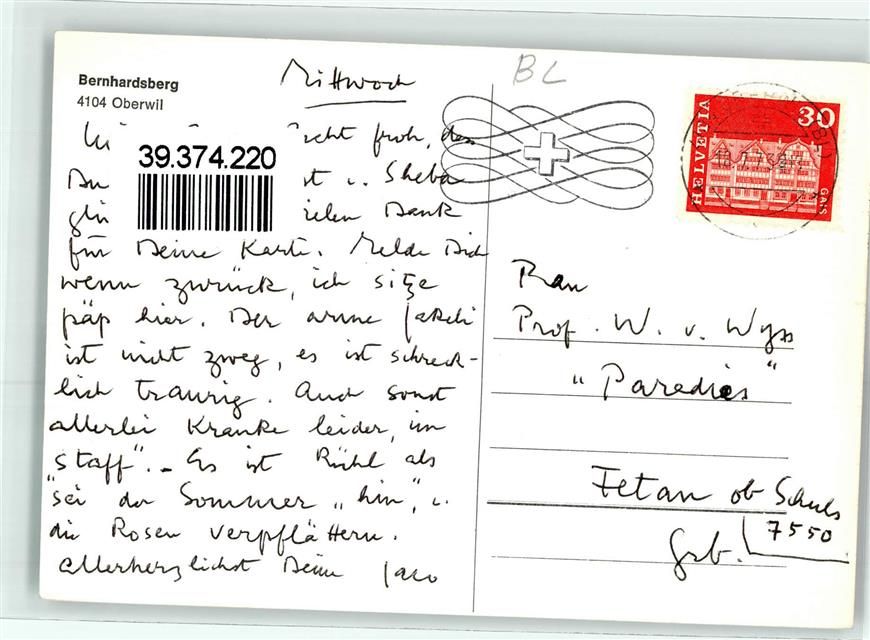 Bernhardsberg
4104 Oberwil
Mittwoch
BL
froh, dass
39.374.220
Du
Sheba
Dank
für Deine Karte. Melde Dich
wenn zurück, ich sitze
päp hier. Der arme
ist nicht zweg, es ist schreck-
lich traurig. Auch sonst
allerlei Kranke leider, im
"Staff". - Es ist kühl als
sei der Sommer "hin", u.
die Rosen verpflättern.
Allerherzlichst Deine
HELVETIA
30
GAIS
Frau
Prof. W. v. Wyss
"Paradies"
Fetan ob Schuls
7550
Grb.